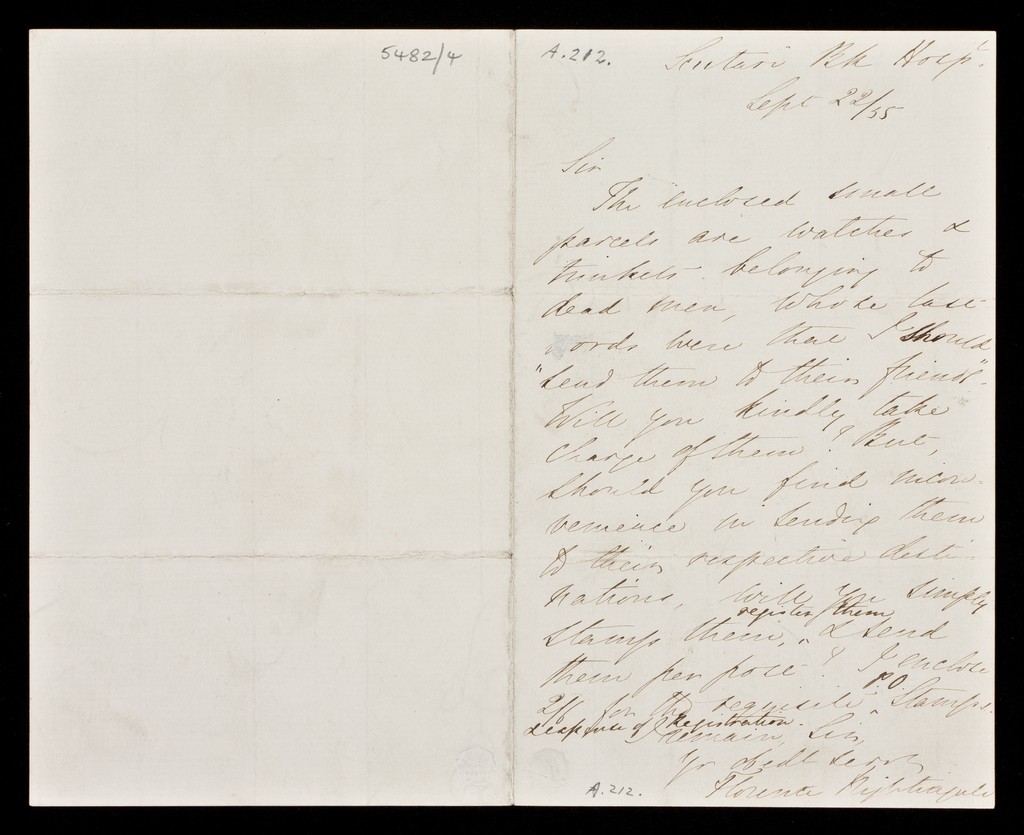 5482/4
A.212.
Scutari Bk Hospl.
Sept 22/55
Sir
The enclosed small
parcels are watches &
trinkets belonging to
dead men, whose last
words were that I should
"send them to their friends".
Will you kindly take
charge of them? But,
should you find incon-
venience in sending them
to their respective desti-
nations, will you simply
register them
stamp them, ^ & send
them per post? I enclose
P.O.
2/ for the requisite ^ Stamps.
& expense of Registration.
I remain, Sir,
Yr obedt servt
Florence Nightingale
A.212.